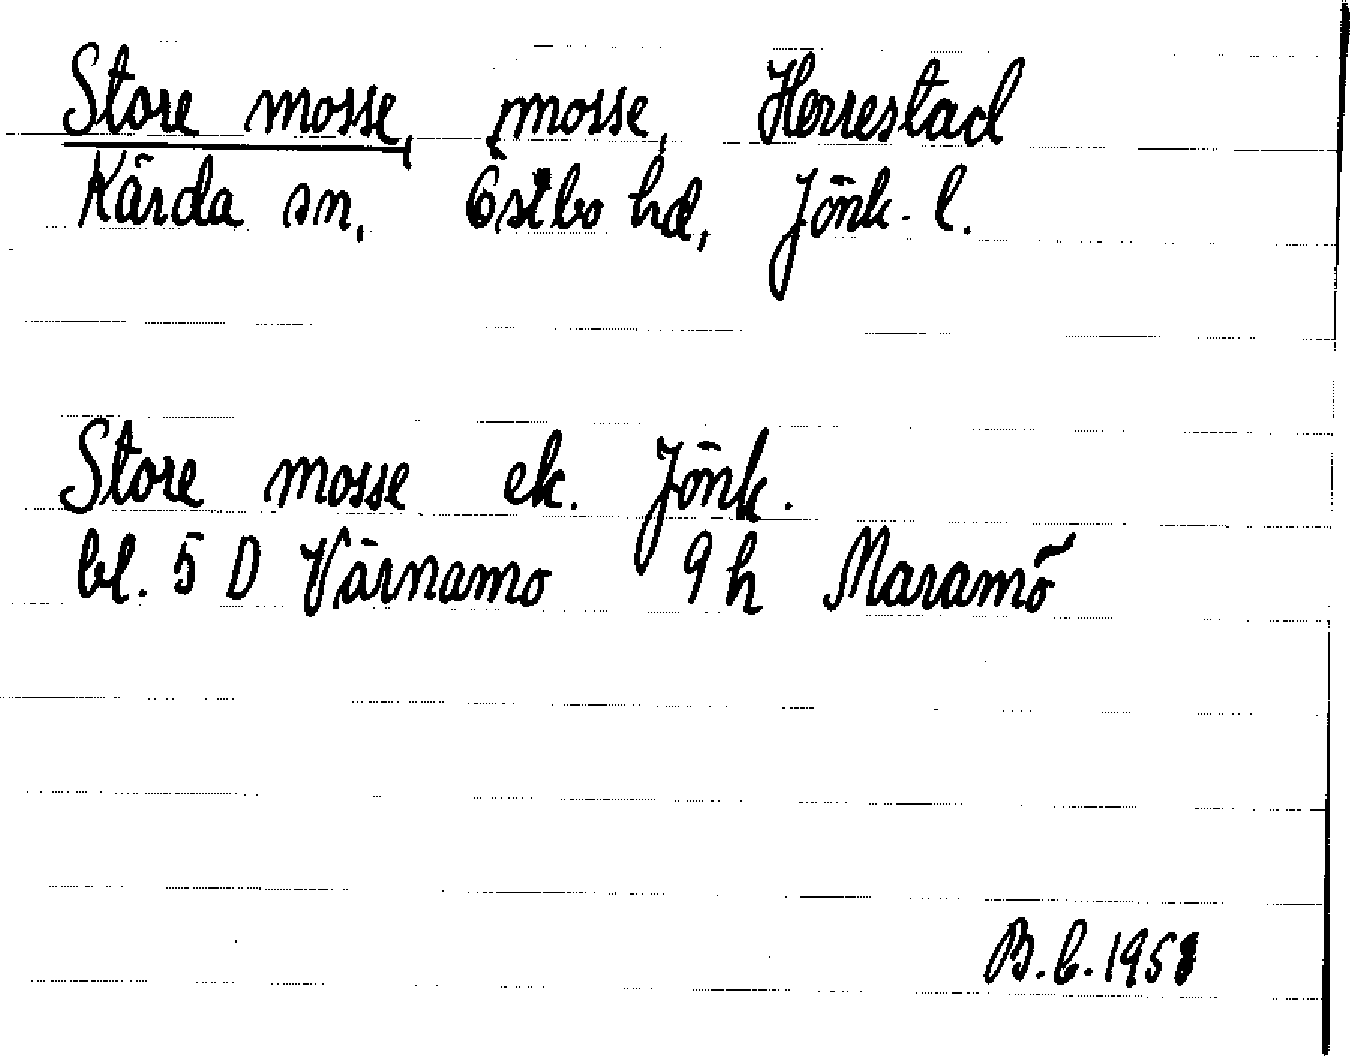 Store mosse, mosse, Herrestad
Kärda sn, Östbo hd, Jönk. l.
Store mosse ek. Jönk.
bl. 5 D Värnamo 9h Maramö
B.b.1958